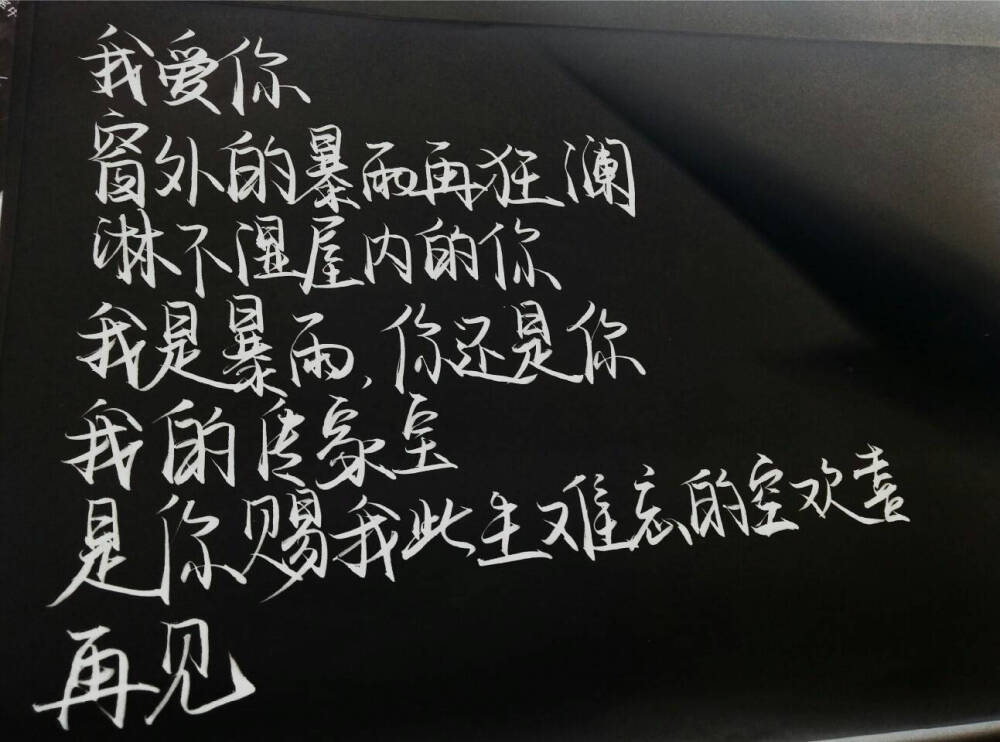 我爱你
窗外的暴雨再狂澜
淋不湿屋内的你
我是暴雨,你还是你
我的传家宝
是你赐我此生难忘的空欢喜
再见